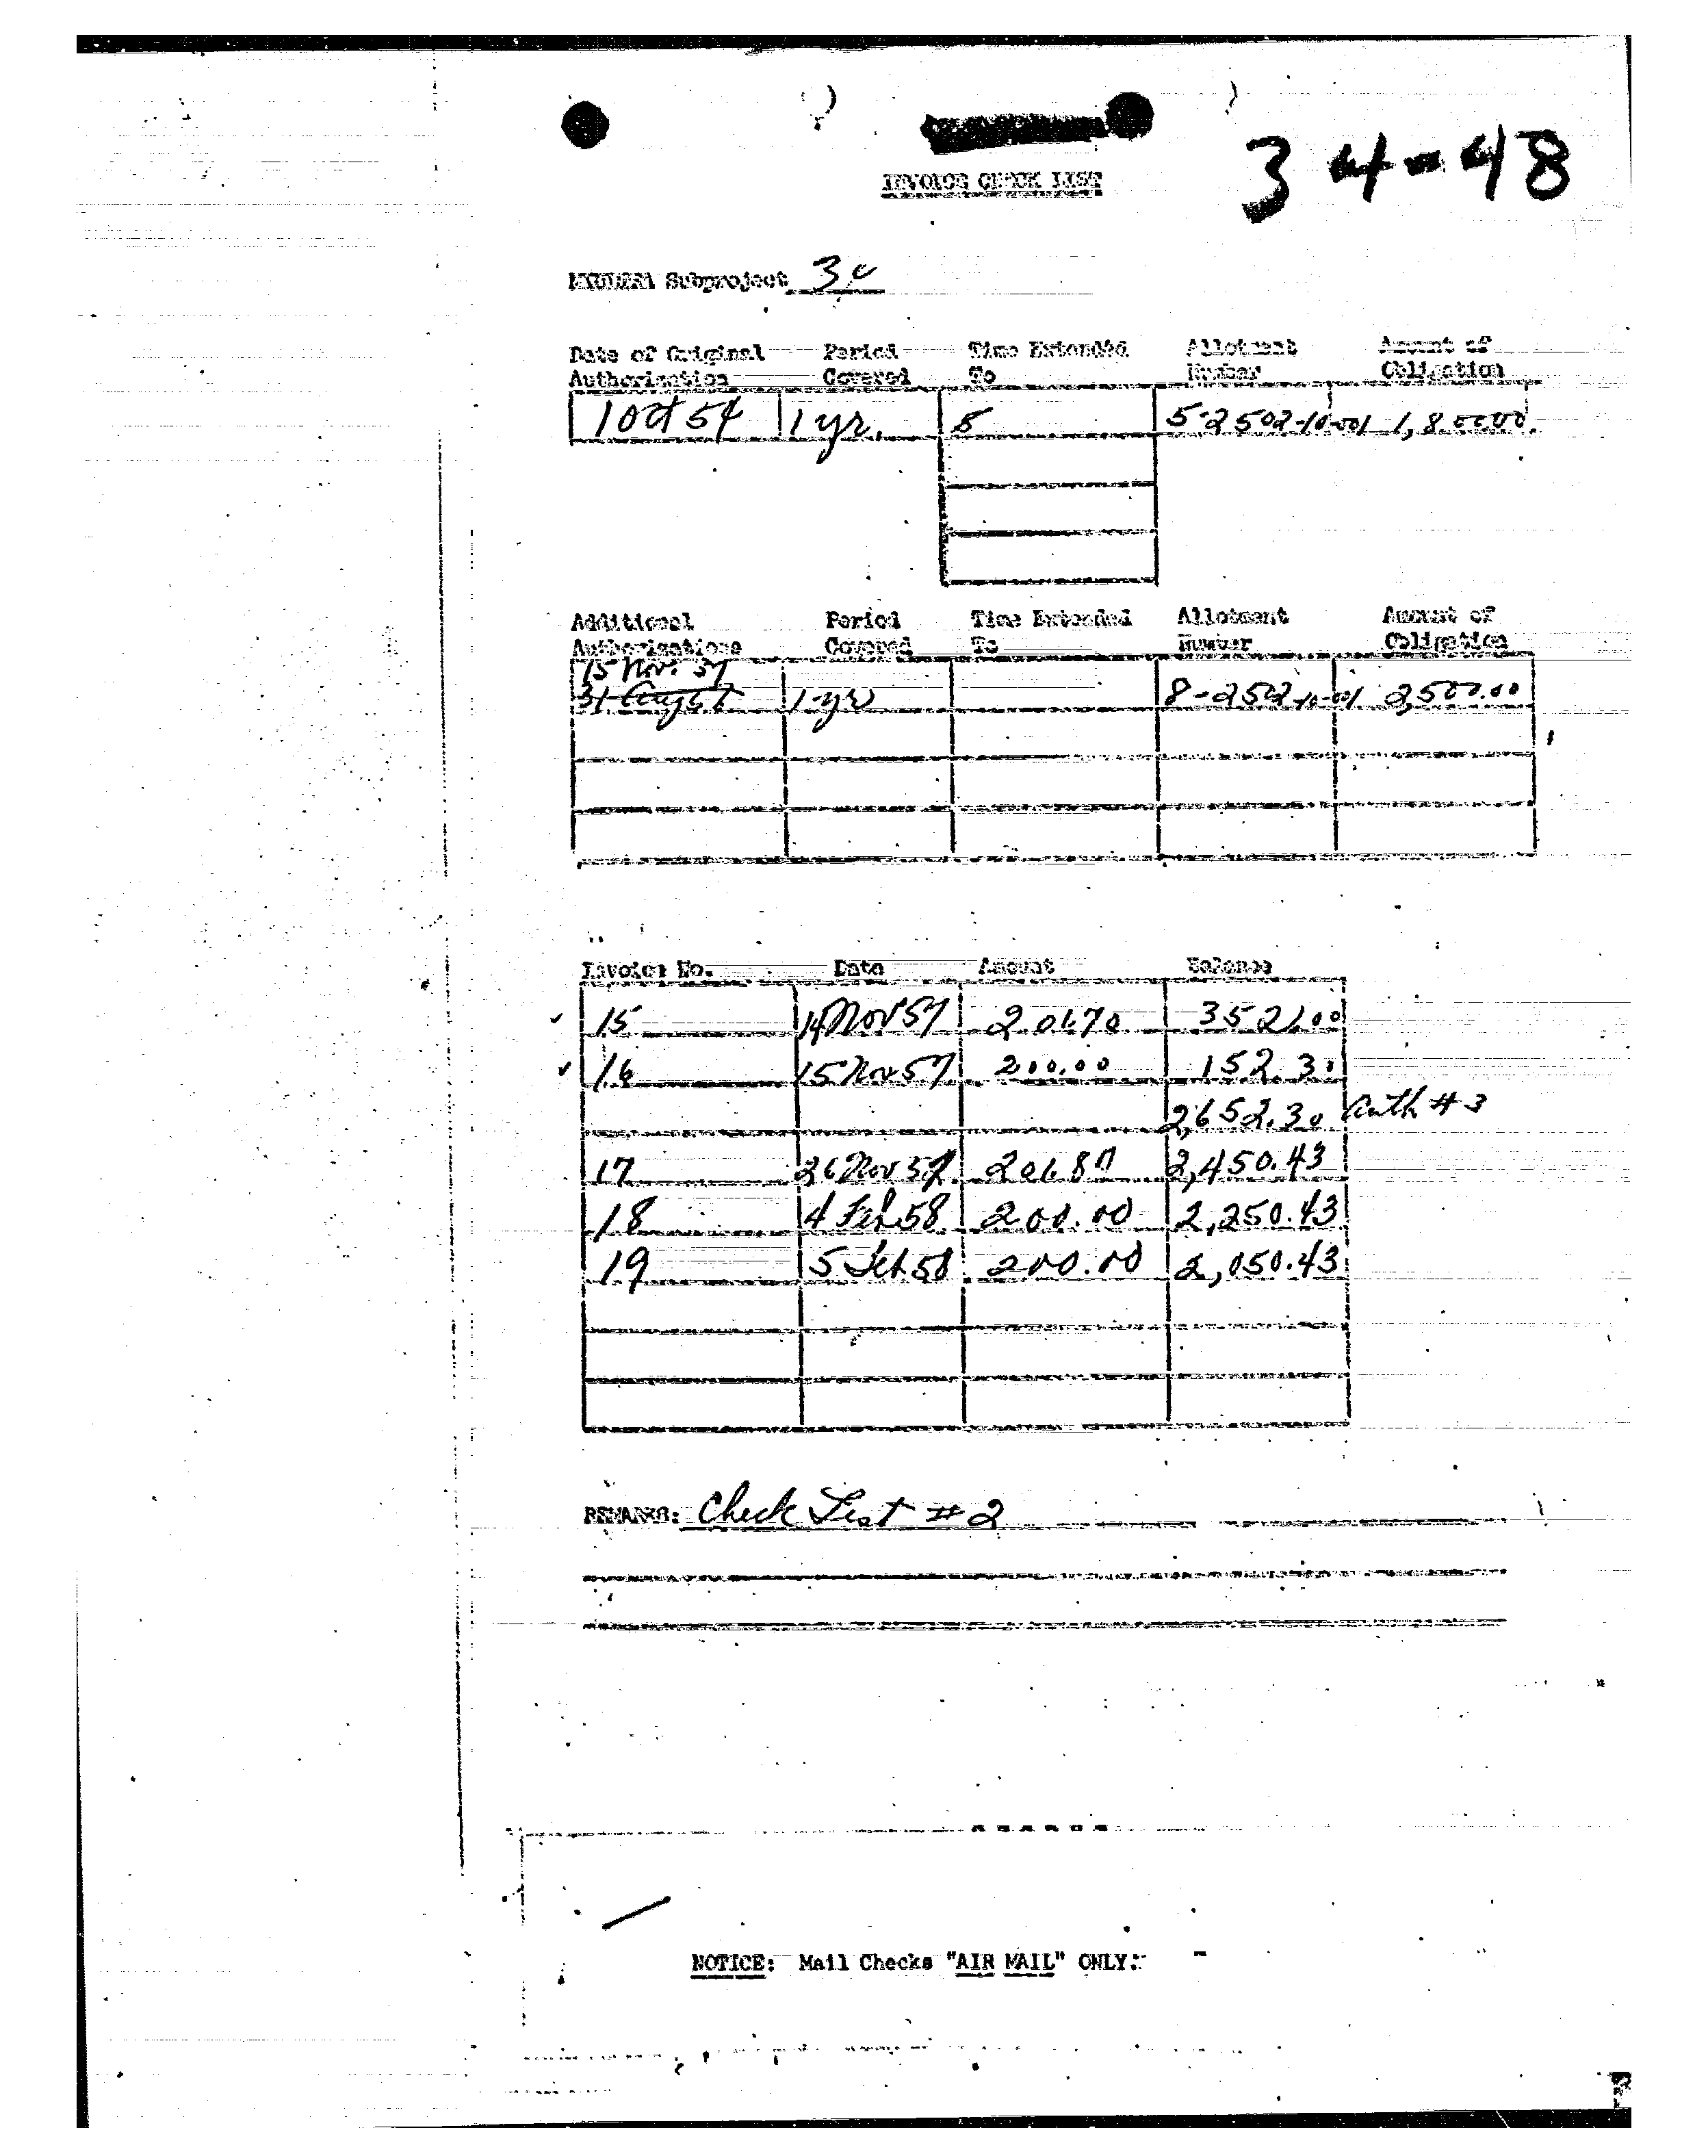 34-48
INVOICE CHECK LIST
MKULTRA Subproject 34
Date of Original Authorization Period Covered Time Extended To Allotment Number Amount of Obligation
1 Oct 54 1 yr. 5-2502-10-001 1,800.00
Additional Authorizations Period Covered Time Extended To Allotment Number Amount of Obligation
15 Nov. 57
31 Aug 57 1 yr 8-2502-10-001 2,500.00
Invoice No. Date Amount Balance
15 14 Nov 57 201.70 352.00
16 15 Nov 57 200.00 152.30
2,652.30 Auth #3
17 26 Nov 57 201.87 2,450.43
18 4 Feb 58 200.00 2,250.43
19 5 Feb 58 200.00 2,050.43
REMARKS: Check List #2
NOTICE: Mail Checks "AIR MAIL" ONLY.